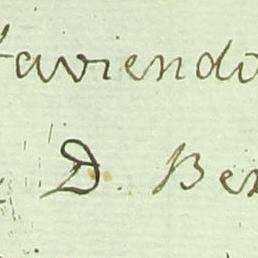 Haviendo
D. Ber